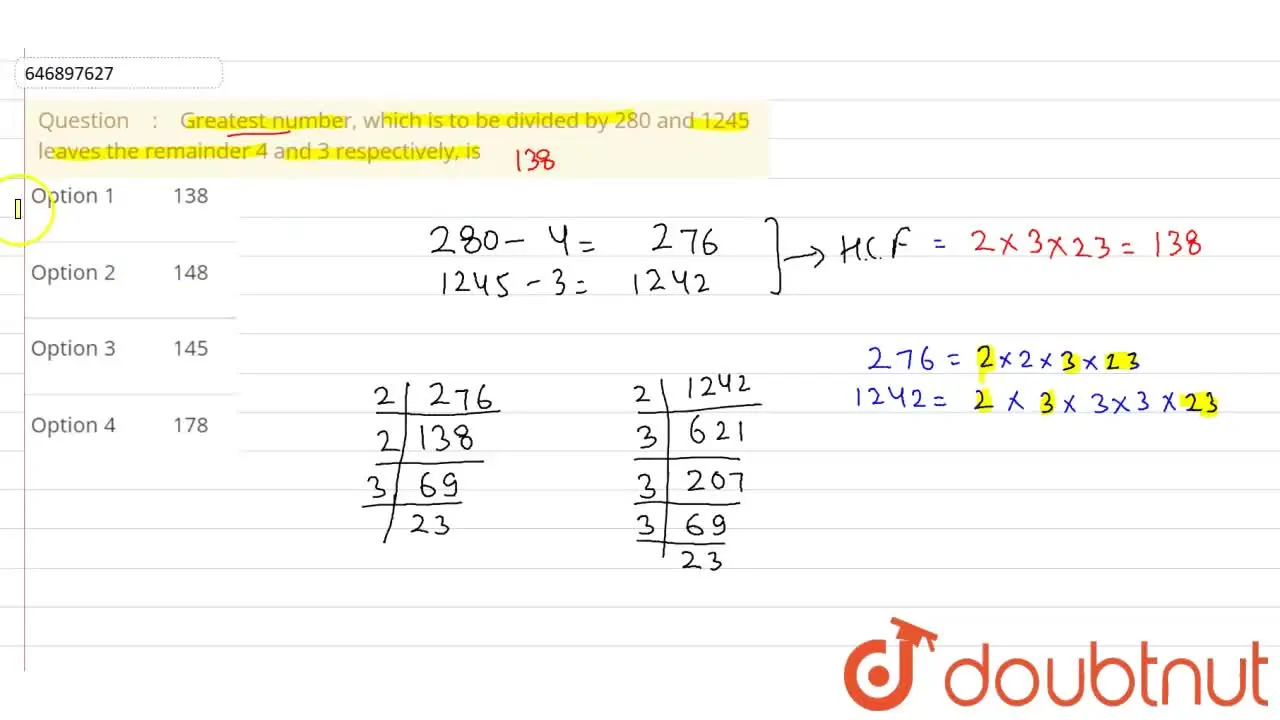 646897627
Question : Greatest number, which is to be divided by 280 and 1245
leaves the remainder 4 and 3 respectively, is
138
Option 1 138
Option 2 148
Option 3 145
Option 4 178
280 - 4 = 276
1245 - 3 = 1242
→ H.C.F = 2 × 3 × 23 = 138
276 = 2 × 2 × 3 × 23
1242 = 2 × 3 × 3 × 3 × 23
2 | 276
2 | 138
3 | 69
23
2 | 1242
3 | 621
3 | 207
3 | 69
23
doubtnut